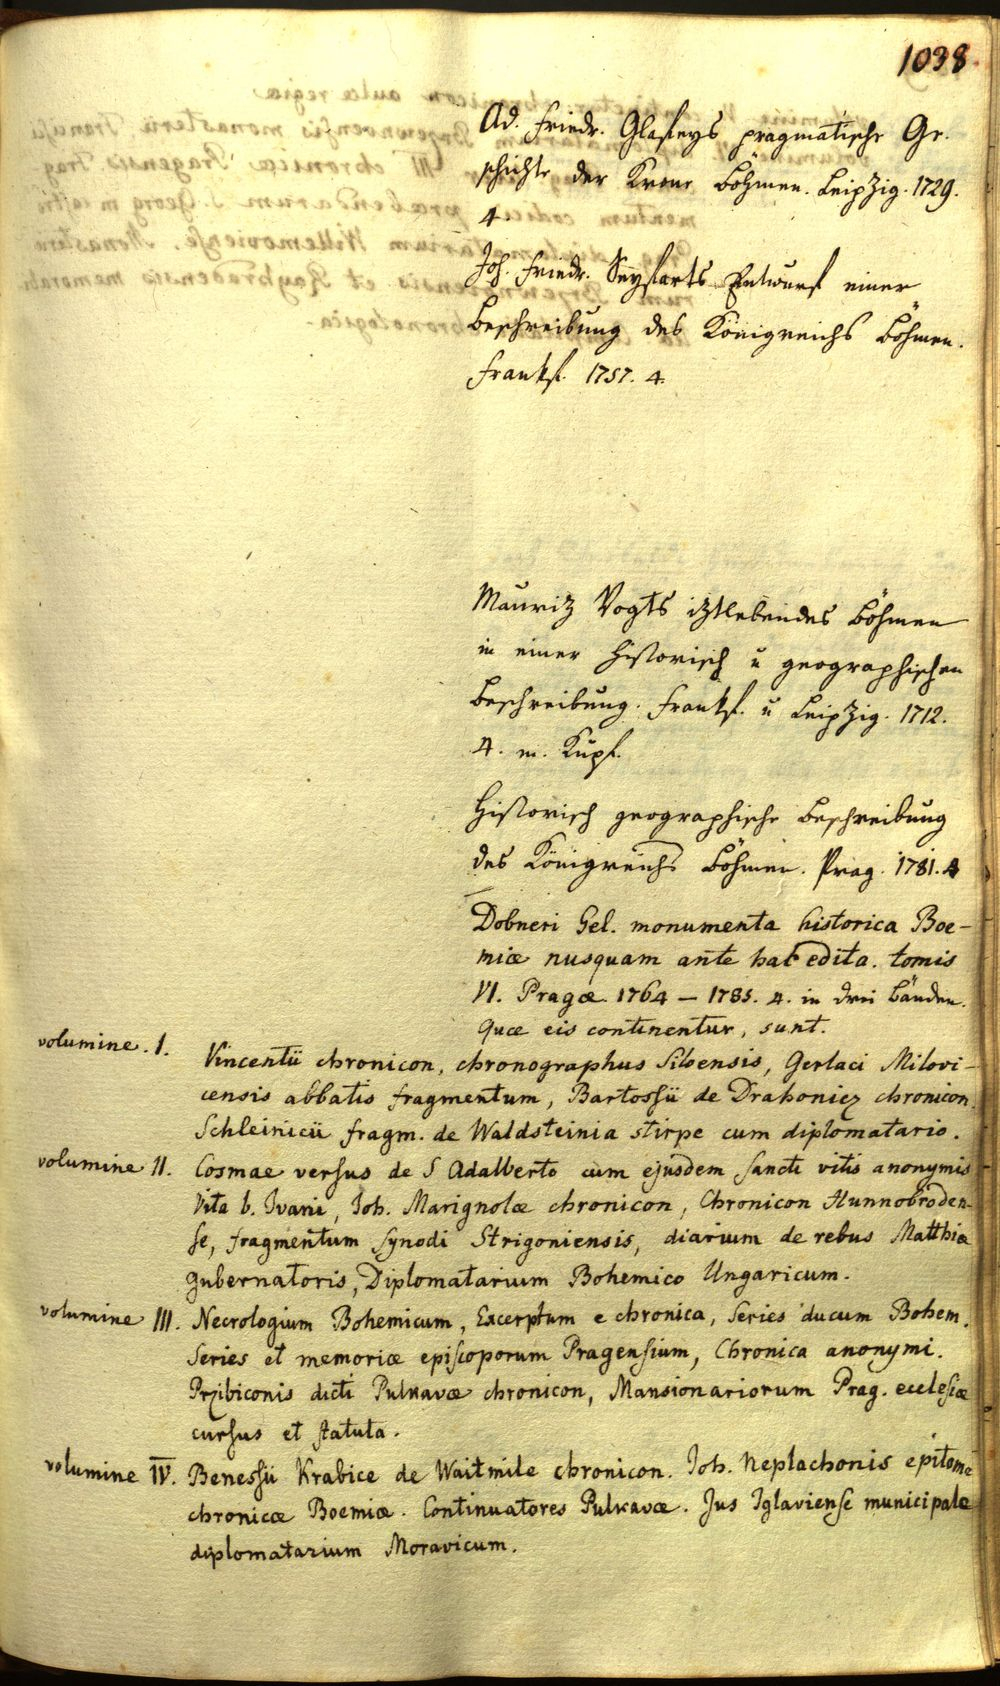 1038
Ad. Friedr. Glafeys pragmatische Ge-
schichte der Krone Böhmen. Leipzig. 1729.
4.
Joh. Friedr. Seyfarts Entwurf einer
Beschreibung des Königreichs Böhmen.
Frankf. 1757. 4.
Mauriz Vogts iztlebendes Böhmen
in einer historisch u geographischen
Beschreibung. Frankf. u Leipzig. 1712.
4. m. Kupf.
Historisch geographische Beschreibung
des Königreichs Böhmen. Prag. 1781. 4
Dobneri Gel. monumenta historica Boe-
miæ nusquam ante hac edita. tomis
VI. Pragæ 1764 – 1785. 4. in drei Bänden.
Quæ eis continentur, sunt.
volumine. I. Vincentii chronicon, chronographus Siloensis, Gerlaci Milovi-
censis abbatis fragmentum, Bartossii de Drahonicz chronicon.
Schleinicii fragm. de Waldsteinia stirpe cum diplomatario.
volumine II. Cosmae versus de S Adalberto cum ejusdem sancti vitis anonymis
Vita b. Ivani, Joh. Marignolæ chronicon, Chronicon Hunnobroden-
se, fragmentum synodi Strigoniensis, diarium de rebus Matthiæ
gubernatoris, Diplomatarium Bohemico Ungaricum.
volumine III. Necrologium Bohemicum, Excerptum e chronica, Series ducum Bohem.
Series et memoriæ episcoporum Pragensium, Chronica anonymi.
Przibiconis dicti Pulkavæ chronicon, Mansionariorum Prag. ecclesiæ
cursus et statuta.
volumine IV. Benessii Krabice de Waitmile chronicon. Joh. Neplachonis epitome
chronicæ Boemiæ. Continuatores Pulkavæ. Jus Iglaviense municipale
diplomatarium Moravicum.